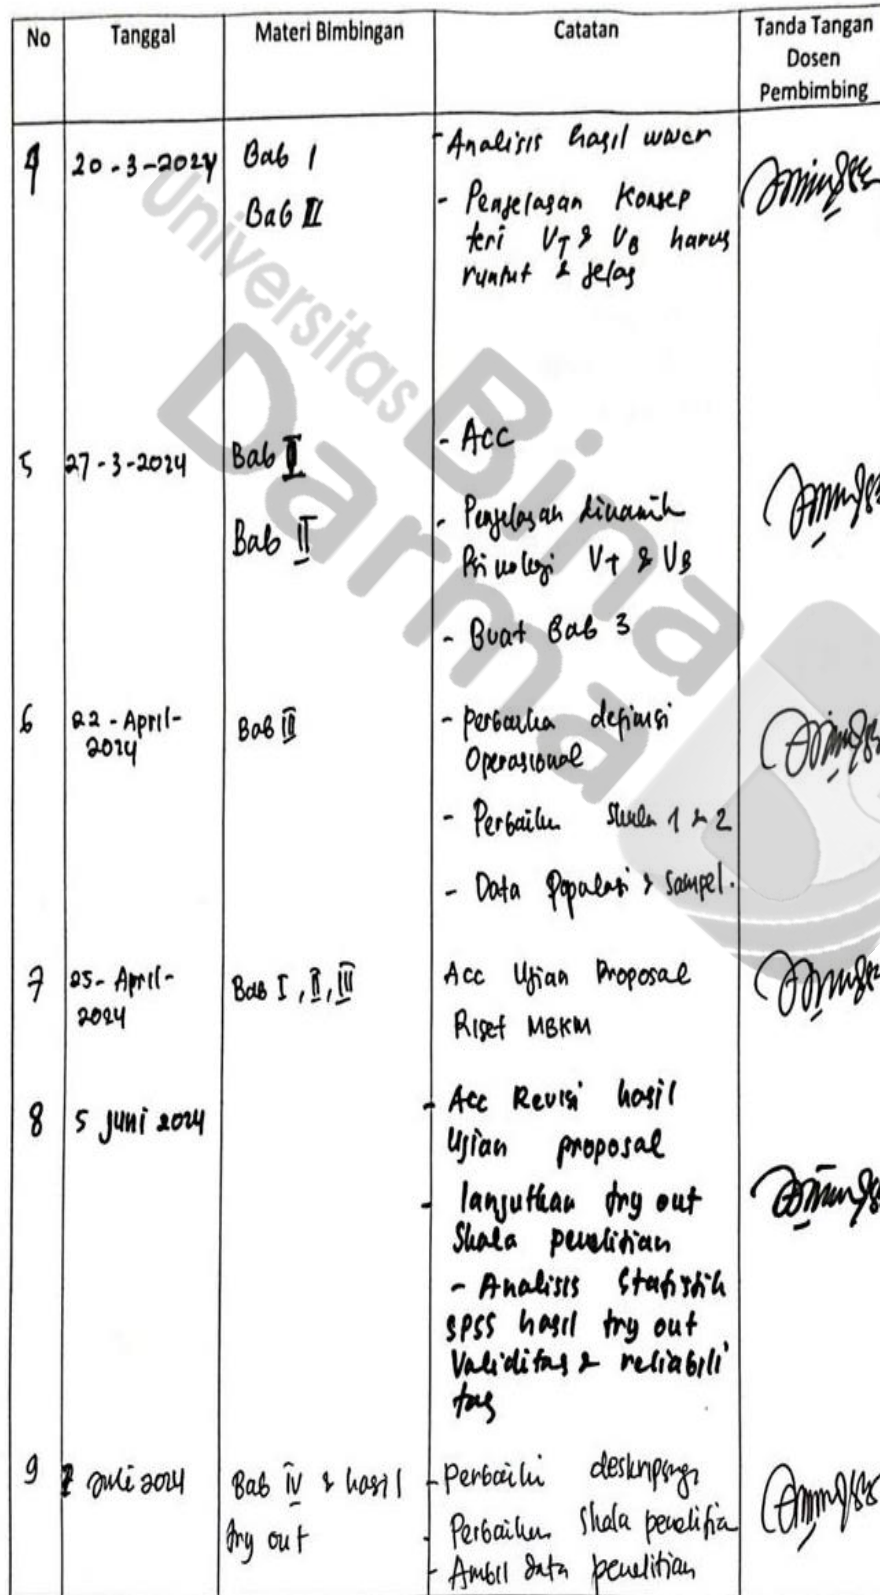 No Tanggal Materi Bimbingan Catatan Tanda Tangan
Dosen
Pembimbing
4 20-3-2024 Bab I - Analisis hasil wawan
Bab II - Penjelasan Konsep
teri VT & VB harus
runtut & jelas
Universitas
Bina
Darma
5 27-3-2024 Bab I - ACC
Bab II - Penjelasan dinamik
VT & VB
- Buat Bab 3
6 22-April- Bab III - perbaika definisi
2024 Operasional
- Perbaiki Skala 1 & 2
- Data Populasi & Sampel.
7 25-April- Bab I, II, III Acc Ujian Proposal
2024 Riset MBKM
8 5 Juni 2024 - Acc Revisi hasil
Ujian proposal
- lanjutkan try out
Skala penelitian
- Analisis Statistik
SPSS hasil try out
Validitas & reliabili
tas
9 Juli 2024 Bab IV & hasil - Perbaiki
try out - Perbaiki Skala penelitian
- Ambil data penelitian